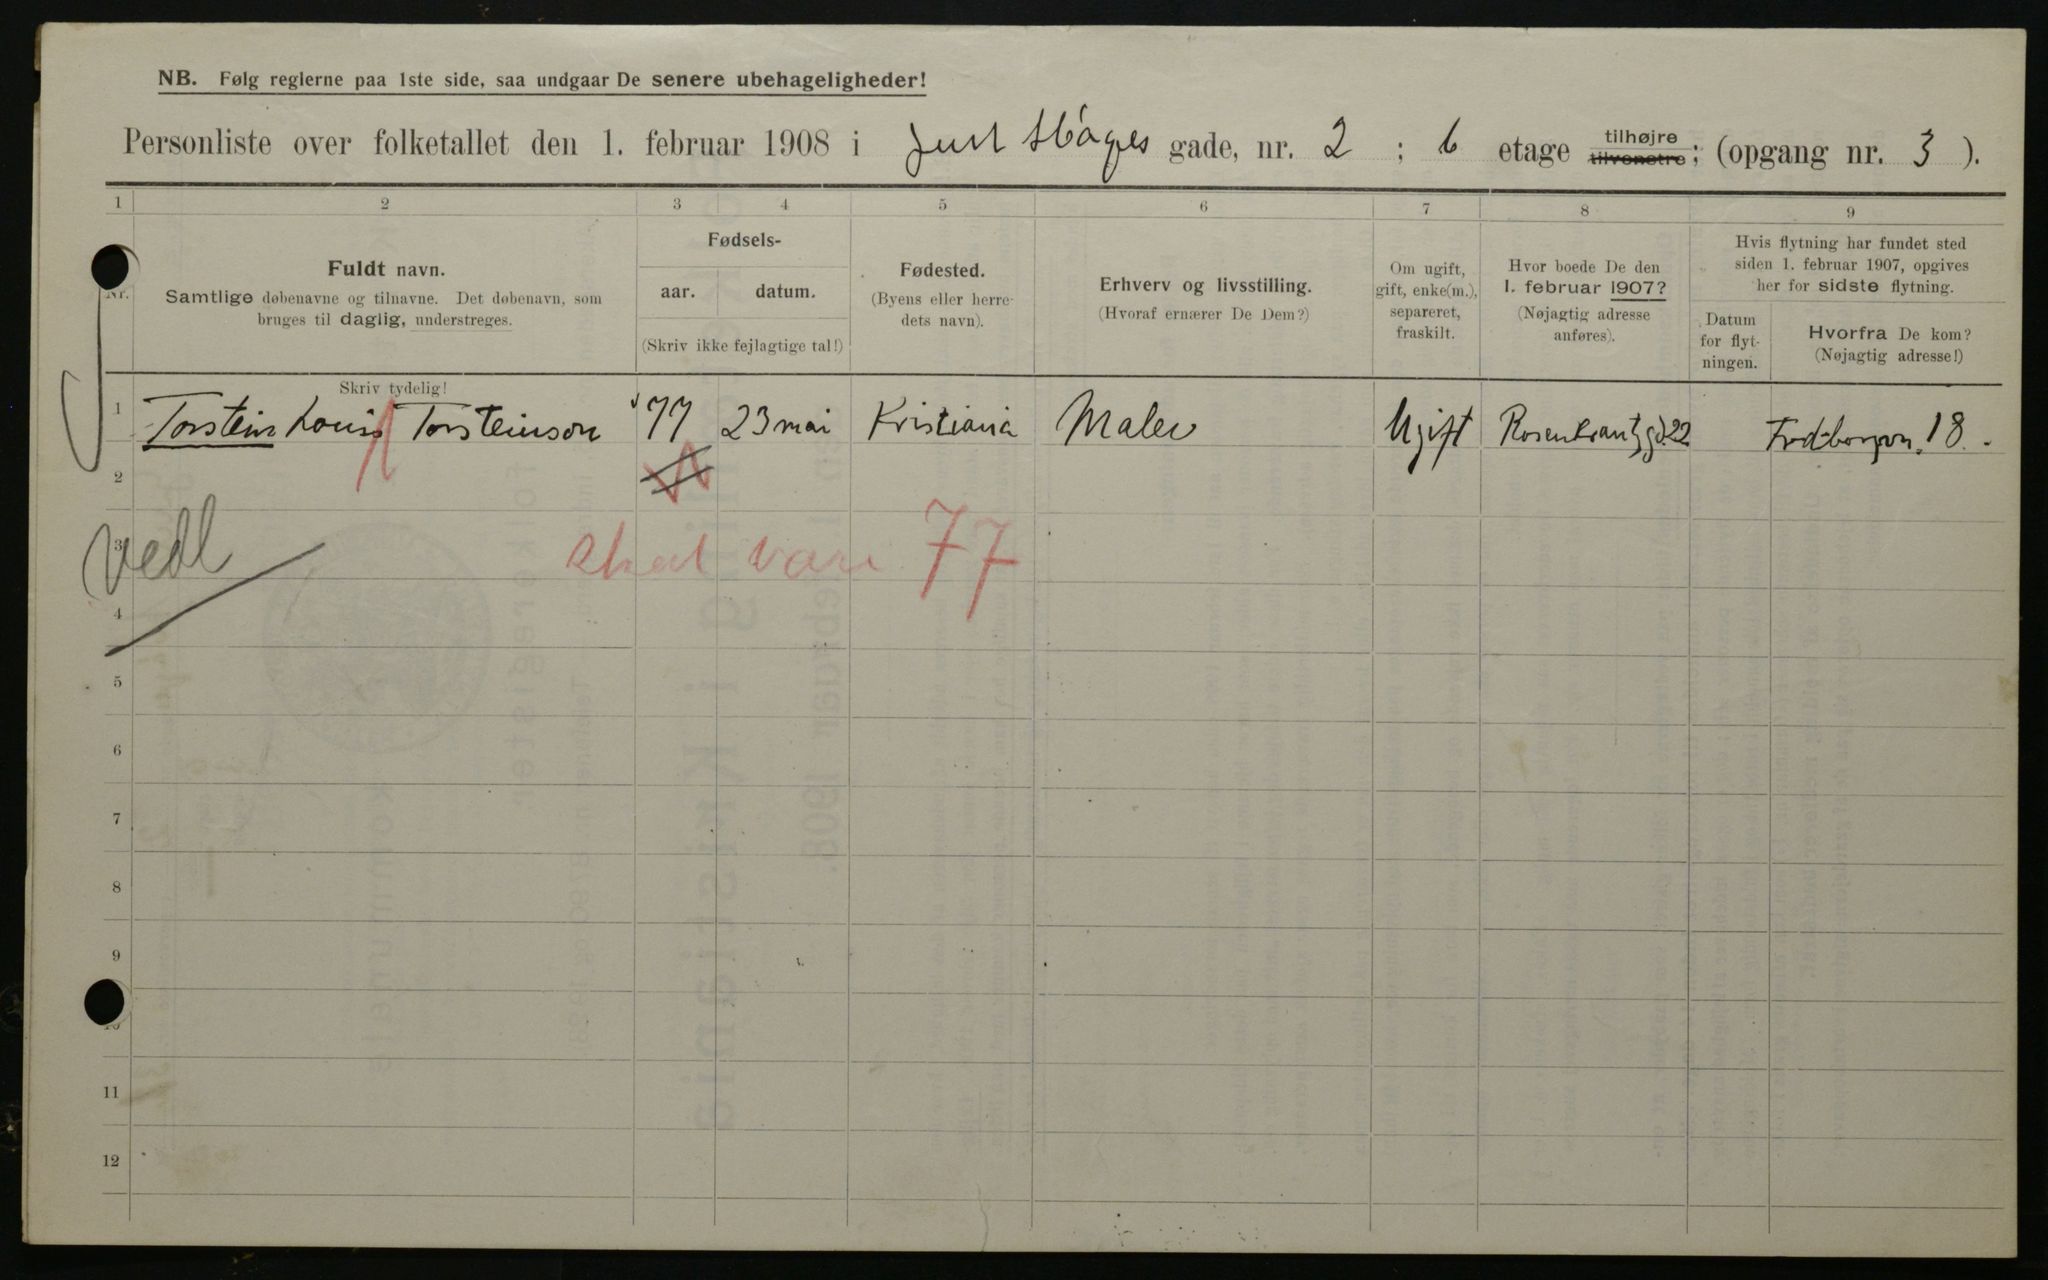 NB. Følg reglerne paa 1ste side, saa undgaar De senere ubehageligheder!
Personliste over folketallet den 1. februar 1908 i Just Høges gade, nr. 2 ; 6 etage tilhøjre tilvenstre; (opgang nr. 3 ).
1 2 3 4 5 6 7 8 9
Nr.
Fuldt navn.
Samtlige døbenavne og tilnavne. Det døbenavn, som
bruges til daglig, understreges.
Skriv tydelig!
Fødsels-
aar. datum.
(Skriv ikke fejlagtige tal!)
Fødested.
(Byens eller herre-
dets navn).
Erhverv og livsstilling.
(Hvoraf ernærer De Dem?)
Om ugift,
gift, enke(m.),
separeret,
fraskilt.
Hvor boede De den
1. februar 1907?
(Nøjagtig adresse
anføres).
Hvis flytning har fundet sted
siden 1. februar 1907, opgives
her for sidste flytning.
Datum
for flyt-
ningen.
Hvorfra De kom?
(Nøjagtig adresse!)
1 Torstein Louis Torsteinson 77 23 mai Kristiania Maler Ugift Rosenkrantzgd. 22 18.
2
3
vedl
skal være 77
4
5
6
7
8
9
10
11
12